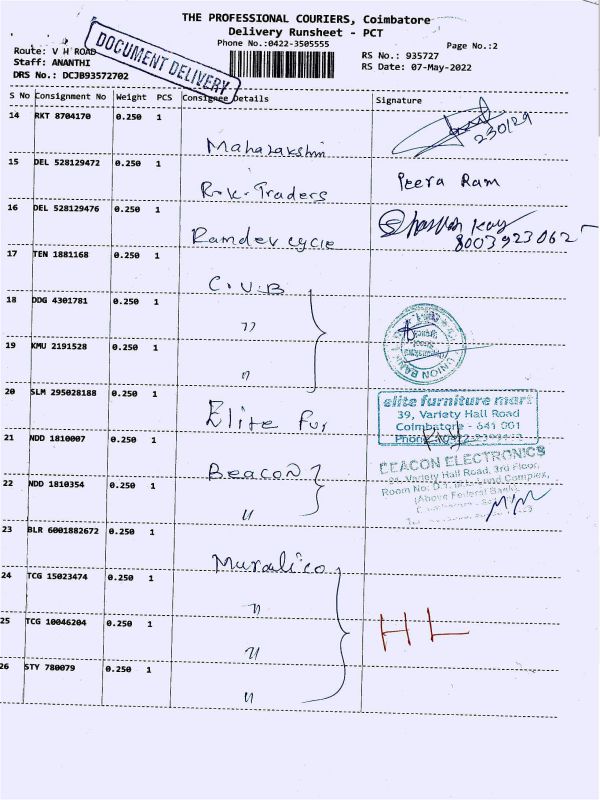 THE PROFESSIONAL COURIERS, Coimbatore
Delivery Runsheet - PCT
Phone No.:0422-3505555
Page No.:2
Route: V H ROAD
Staff: ANANTHI
DRS No.: DCJB93572702
RS No.: 935727
RS Date: 07-May-2022
DOCUMENT DELIVERY
S No Consignment No Weight PCS Consignee Details Signature
14 RKT 8704170 0.250 1 Mahalakshmi 230129
15 DEL 528129472 0.250 1 R.K. Traders Peera Ram
16 DEL 528129476 0.250 1 Ramdev cycle 8003923062
17 TEN 1881168 0.250 1 C.U.B
18 DDG 4301781 0.250 1 "
UNION BANK
19 KMU 2191528 0.250 1 "
20 SLM 295028188 0.250 1 Elite Fur
elite furniture mart
39, Variety Hall Road
Coimbatore - 641 001
21 NDD 1810007 0.250 1 Beacon
BEACON ELECTRONICS
Variety Hall Road, 3rd Floor,
Room No: Complex,
(Above Federal Bank)
22 NDD 1810354 0.250 1 "
23 BLR 6001882672 0.250 1 Muralico
24 TCG 15023474 0.250 1 "
25 TCG 10046204 0.250 1 " H L
26 STY 780079 0.250 1 "